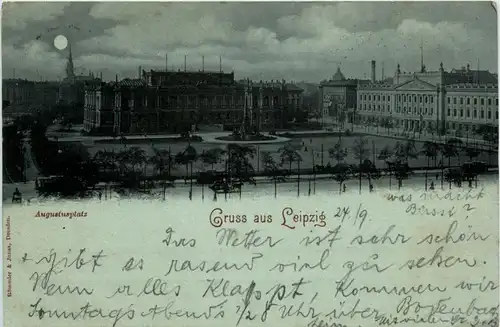 Augustusplatz
Gruss aus Leipzig 24/9 was macht
Bussi?
Das Wetter ist sehr schön
+ gibt es rasend viel zu sehen.
Wenn alles klappt, kommen wir
Sonntags Abends ½ 8 Uhr über Bodenbach